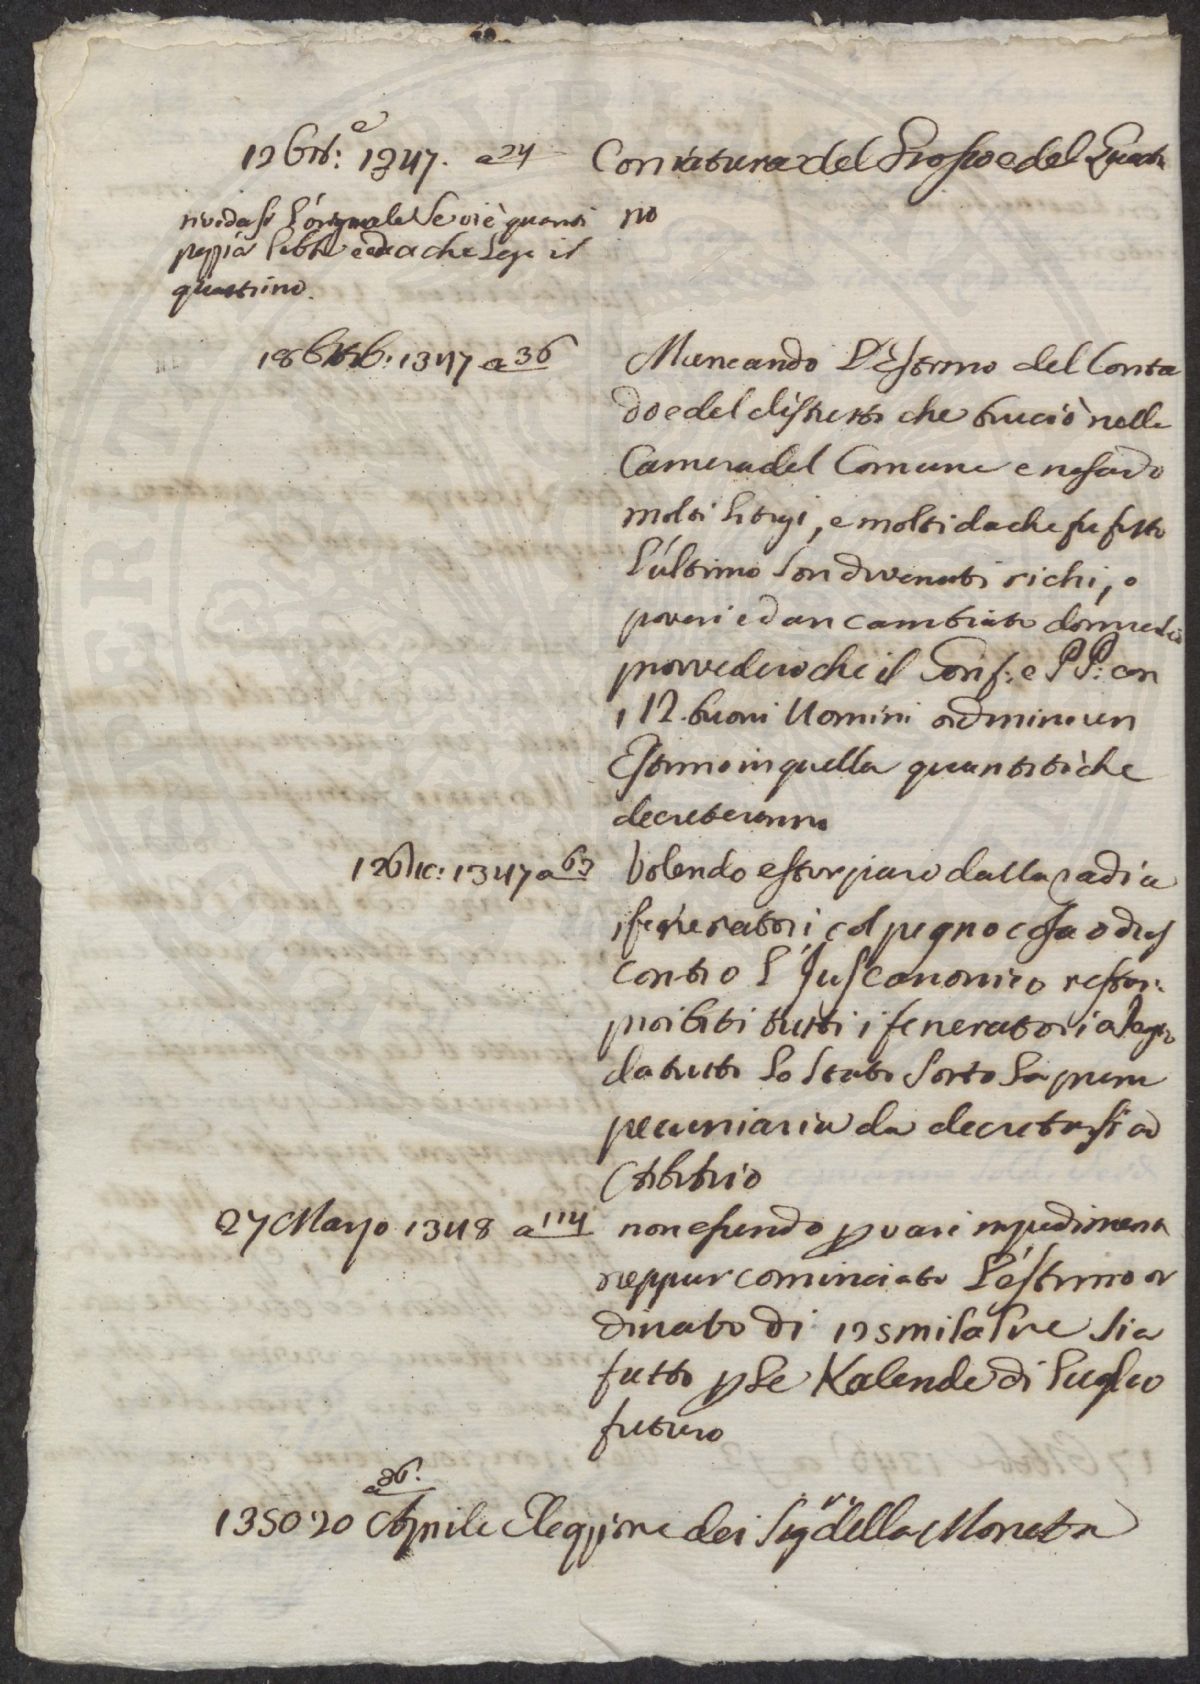 12 Ott:e 1347. a 24 Coniatura del Grosso e del Quatri
no
rividasi l'originale se vi è quanti
pezzi a libbra e da che lega il
quattrino.
18 Ottob: 1347 a 36
Mancando l'Estimo del Conta
do e del distretto che bruciò nella
Camera del Comune e nascendo
molti litigi, e molti da che fu fatto
l'ultimo son divenuti richi, o
poveri ed an cambiato domicilio
provvedero che il Conf: e PP: con
i 12. buoni Uomini ordinino un
Estimo in quella quantità che
decreteranno
12 Dic: 1347 a 63
Volendo estirpare dalla radice
i feneratori col pegno
contro l'Jus canonico
proibiti tutti i feneratori a
da tutto lo stato sotto la pena
pecuniaria da decretarsi ad
Arbitrio
27 Maggio 1348 a 114
non essendo p vari impedimenti
neppur cominciato l'éstimo or
dinato di 125 mila lire sia
fatto p le Kalende di Luglio
futuro
a 86.
1350. 20 Aprile Elezzione dei Sig.ri della Moneta